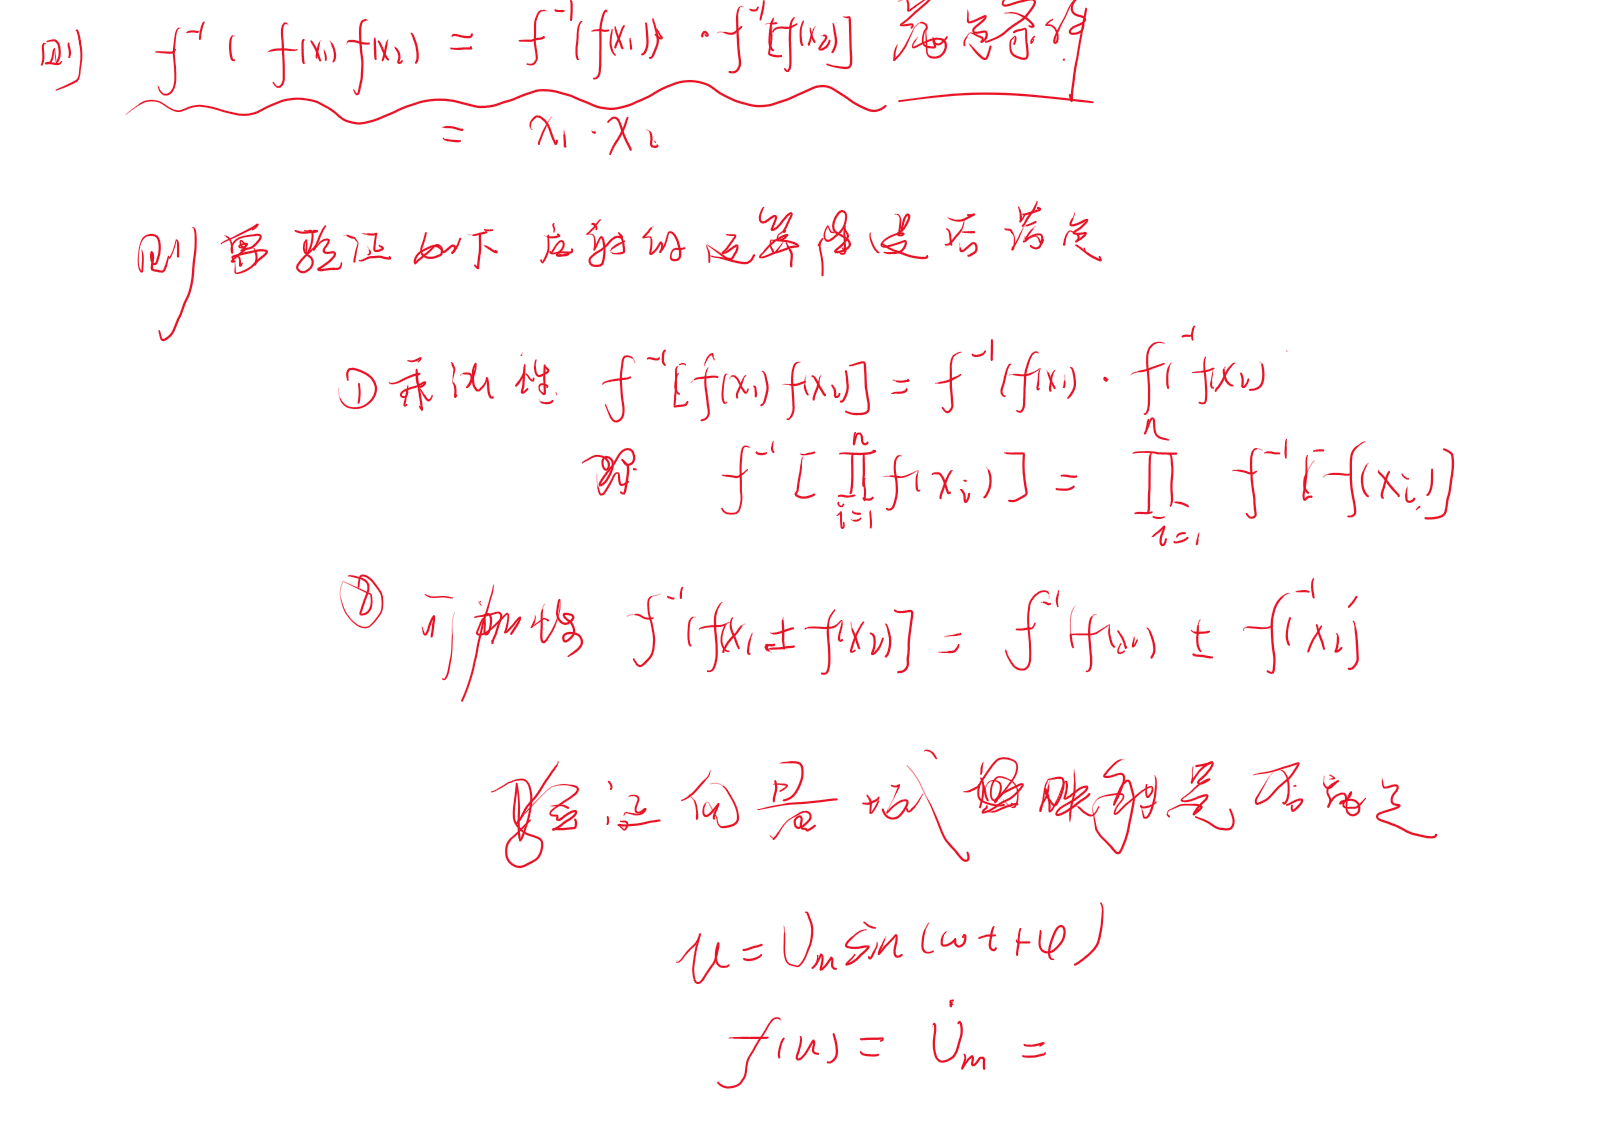 则 f⁻¹( f(x₁) f(x₂) ) = f⁻¹(f(x₁)) · f⁻¹[f(x₂)] 满足条件
= x₁ · x₂
则 需 验证 如下 映射的 运算律 是否 满足
① 乘法性 f⁻¹[f(x₁) f(x₂)] = f⁻¹(f(x₁) · f(⁻¹ f(x₂)
即 f⁻¹[∏ᵢ₌₁ⁿ f(xᵢ)] = ∏ᵢ₌₁ⁿ f⁻¹[f(xᵢ)]
② 可加性 f⁻¹(f(x₁ ± f(x₂)] = f⁻¹(f(x₁) ± f(⁻¹x₂)
验证 向量 域 映射是否满足
u = Uₘ sin(ωt+φ)
f(u) = U̇ₘ =